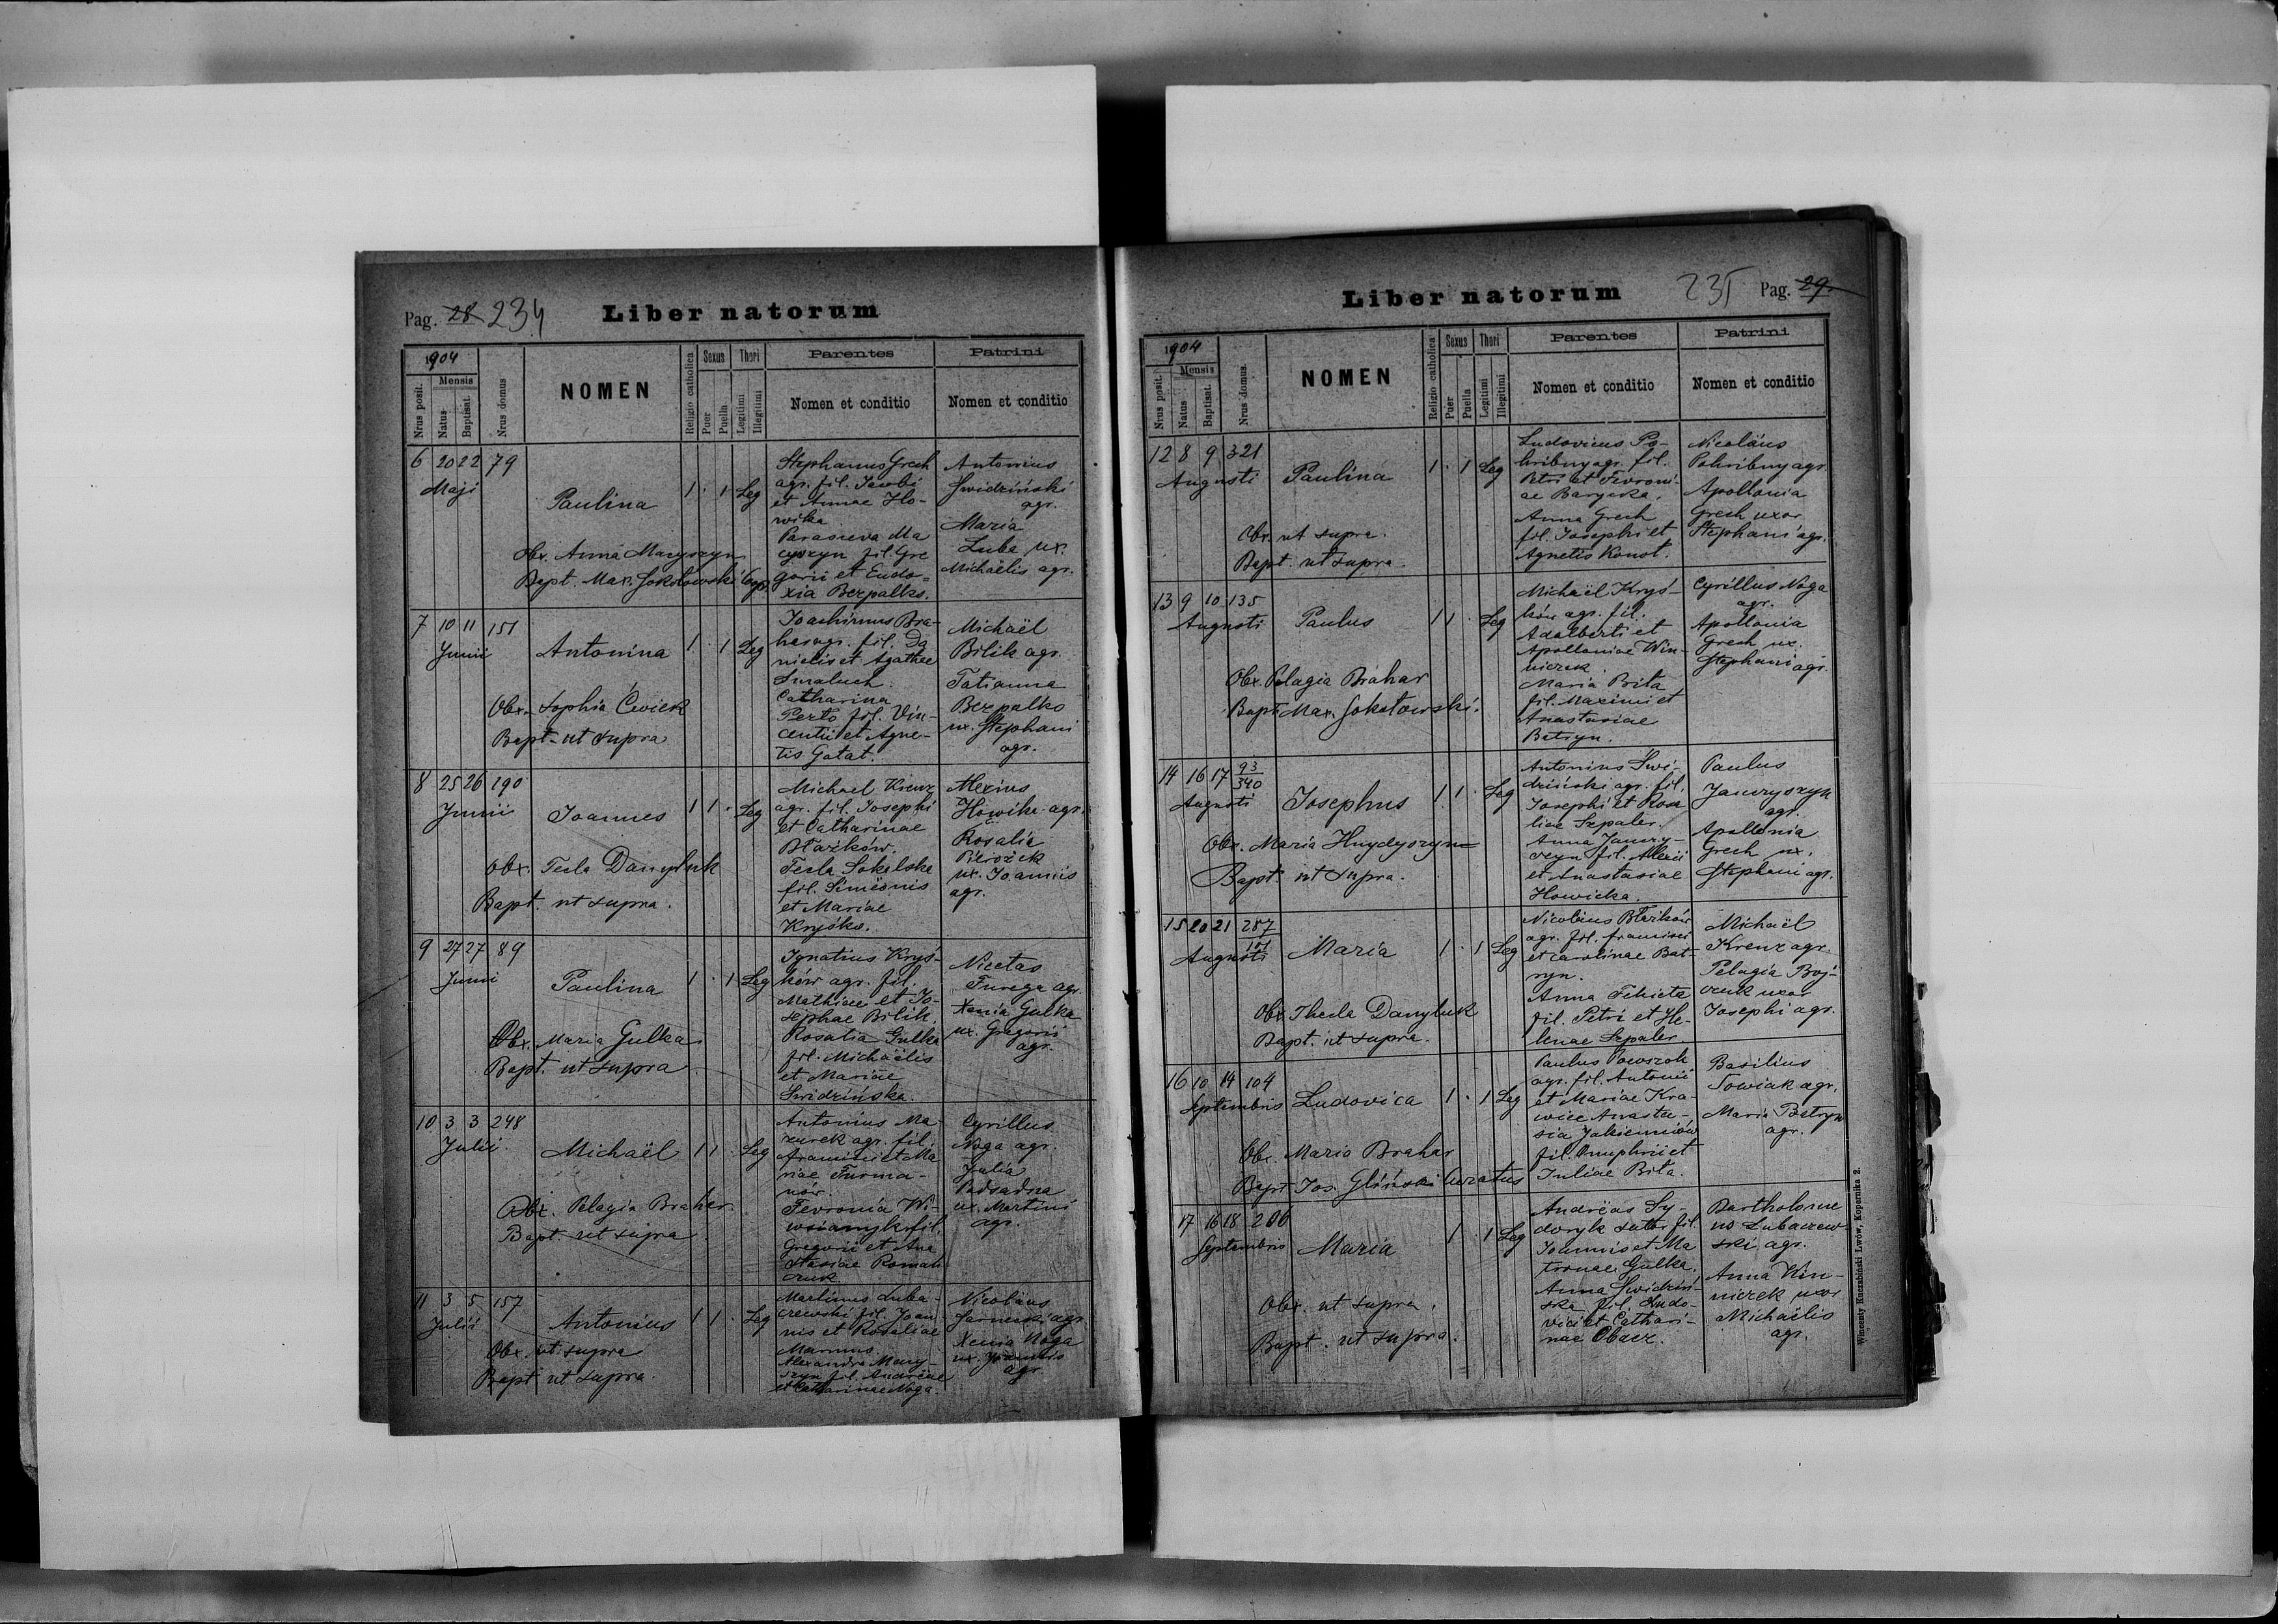 Pag. 28 234 Liber natorum
1904
Mensis
Nrus posit.
Natus
Baptisat.
Nrus domus
NOMEN
Religio catholica
Sexus
Puer
Puella
Thori
Legitimi
Illegitimi
Parentes
Nomen et conditio
Patrini
Nomen et conditio
6 20 22 79
Maji
Paulina
1 · 1 Leg
Obx. Anna Maryszyn
Bapt. Max. Sokołowski Exp.
Stephanus Grech
agr. fil. Jacobi
et Annae Ho-
wika
Parasceva Ma
cyszyn fil. Gre
gorii et Eudo-
xia Bezpalko.
Antonius
Swidziński
agr.
Maria
Luba ux.
Michaëlis agr.
7 10 11 151
Junii
Antonina
1 · 1 Leg
Obx. Sophia Ćwiek
Bapt. ut supra
Joachimus Bra-
har agr. fil. Da
nielis et Agathae
Smaluch.
Catharina
Perto fil. Vin-
centii et Agne-
tis Gatat.
Michaël
Bilik agr.
Tatianna
Bezpalko
ux. Stephani
agr.
8 25 26 190
Junii
Joannes
1 1 · Leg
Obx. Tecla Danyluk
Bapt. ut supra.
Michael Krenz
agr. fil. Josephi
et Catharinae
Błażków.
Tecla Sokalska
fil. Simeonis
et Mariae
Kryśko.
Alexius
Howika agr.
Rosalia
Pierożek
ux. Joannis
agr.
9 27 27 89
Junii
Paulina
1 · 1 Leg
Obx. Maria Gulka
Bapt. ut supra
Ignatius Kryś-
ków agr. fil.
Mathiae et Jo-
sephae Bilik.
Rosalia Gulka
fil. Michaëlis
et Mariae
Świdzińska.
Nicetas
Furega agr.
Xenia Gulka
ux. Gregorii
agr.
10 3 3 248
Julii
Michaël
1 1 · Leg
Obx. Pelagia Brahar
Bapt. ut supra
Antonius Ma-
zurek agr. fil.
Francisci et Ma
riae Furma-
nów.
Fevronia Wi-
wsianyk fil.
Gregorii et Ana
stasiae Roman
czuk
Cyrillus
Noga agr.
Julia
Podsadna
ux. Martini
agr.
11 3 5 157
Julii
Antonius
1 1 · Leg
Obx. ut supra
Bapt. ut supra.
Martinus Luba-
czewski fil. Joan-
nis et Rosaliae
Alexandra Mary-
szyn fil. Andreae
et Catharinae Noga.
Nicolaus
agr.
Xenia Noga
ux. Joannis
agr.
Liber natorum 235 Pag. 29
1904
Mensis
Nrus posit.
Natus
Baptisat.
Nrus domus.
NOMEN
Religio catholica
Sexus
Puer
Puella
Thori
Legitimi
Illegitimi
Parentes
Nomen et conditio
Patrini
Nomen et conditio
12 8 9 321
Augusti
Paulina
1 · 1 Leg
Obx. ut supra.
Bapt. ut supra.
Ludovicus Po-
hribny agr. fil.
Petri et Fevroni
ae Barycka.
Anna Grech
fil. Josephi et
Agnetis Konot.
Nicolaus
Pohribny agr.
Apollonia
Grech uxor
Stephani agr.
13 9 10 135
Augusti
Paulus
1 1 · Leg
Obx. Pelagia Brahar
Bapt. Max. Sokołowski.
Michaël Kryś-
ków agr. fil.
Adalberti et
Apolloniae Win-
niczek.
Maria Bita
fil. Maximi et
Anastasiae
Batryn.
Cyrillus Noga
agr.
Apollonia
Grech ux.
Stephani agr.
14 16 17 93/340
Augusti
Josephus
1 1 · Leg
Obx. Maria Hnydyszyn
Bapt. ut supra.
Antonius Świ-
dziński agr. fil.
Josephi et Rosa
liae Szpaler.
Anna Jawory-
szyn fil. Alexii
et Anastasiae
Howicka.
Paulus
Jaworyszyn
agr.
Apollonia
Grech ux.
Stephani agr.
15 20 21 287/151
Augusti
Maria
1 · 1 Leg
Obx. Thecla Danyluk
Bapt. ut supra.
Nicolaus Błażków
agr. fil. Francisci
et Carolinae Bat-
ryn.
Anna
fil. Petri et He-
lenae Szpaler.
Michaël
Krenz agr.
Pelagia Boj-
czuk uxor
Josephi agr.
16 10 14 104
Septembris
Ludovica
1 · 1 Leg
Obx. Maria Brahar
Bapt. Jos. Gliński Curatus
Paulus Powszok
agr. fil. Antonii
et Mariae Kra-
wiec Anasta-
sia Jakimniów
fil. Onuphrii et
Juliae Bita.
Basilius
Sowiak agr.
Maria Batryn
agr.
17 16 18 206
Septembris
Maria
1 · 1 Leg
Obx. ut supra.
Bapt. ut supra.
Andreas Sy-
doryk sutor fil.
Joannis et Ma
tronae Gulka.
Anna Swidziń-
ska fil. Ludo-
vici et Cathari-
nae Obacz.
Bartholome
us Lubaczew
ski agr.
Anna Win-
niczek uxor
Michaëlis
agr.
Wincenty Kuczabiński Lwów, Kopernika 2.